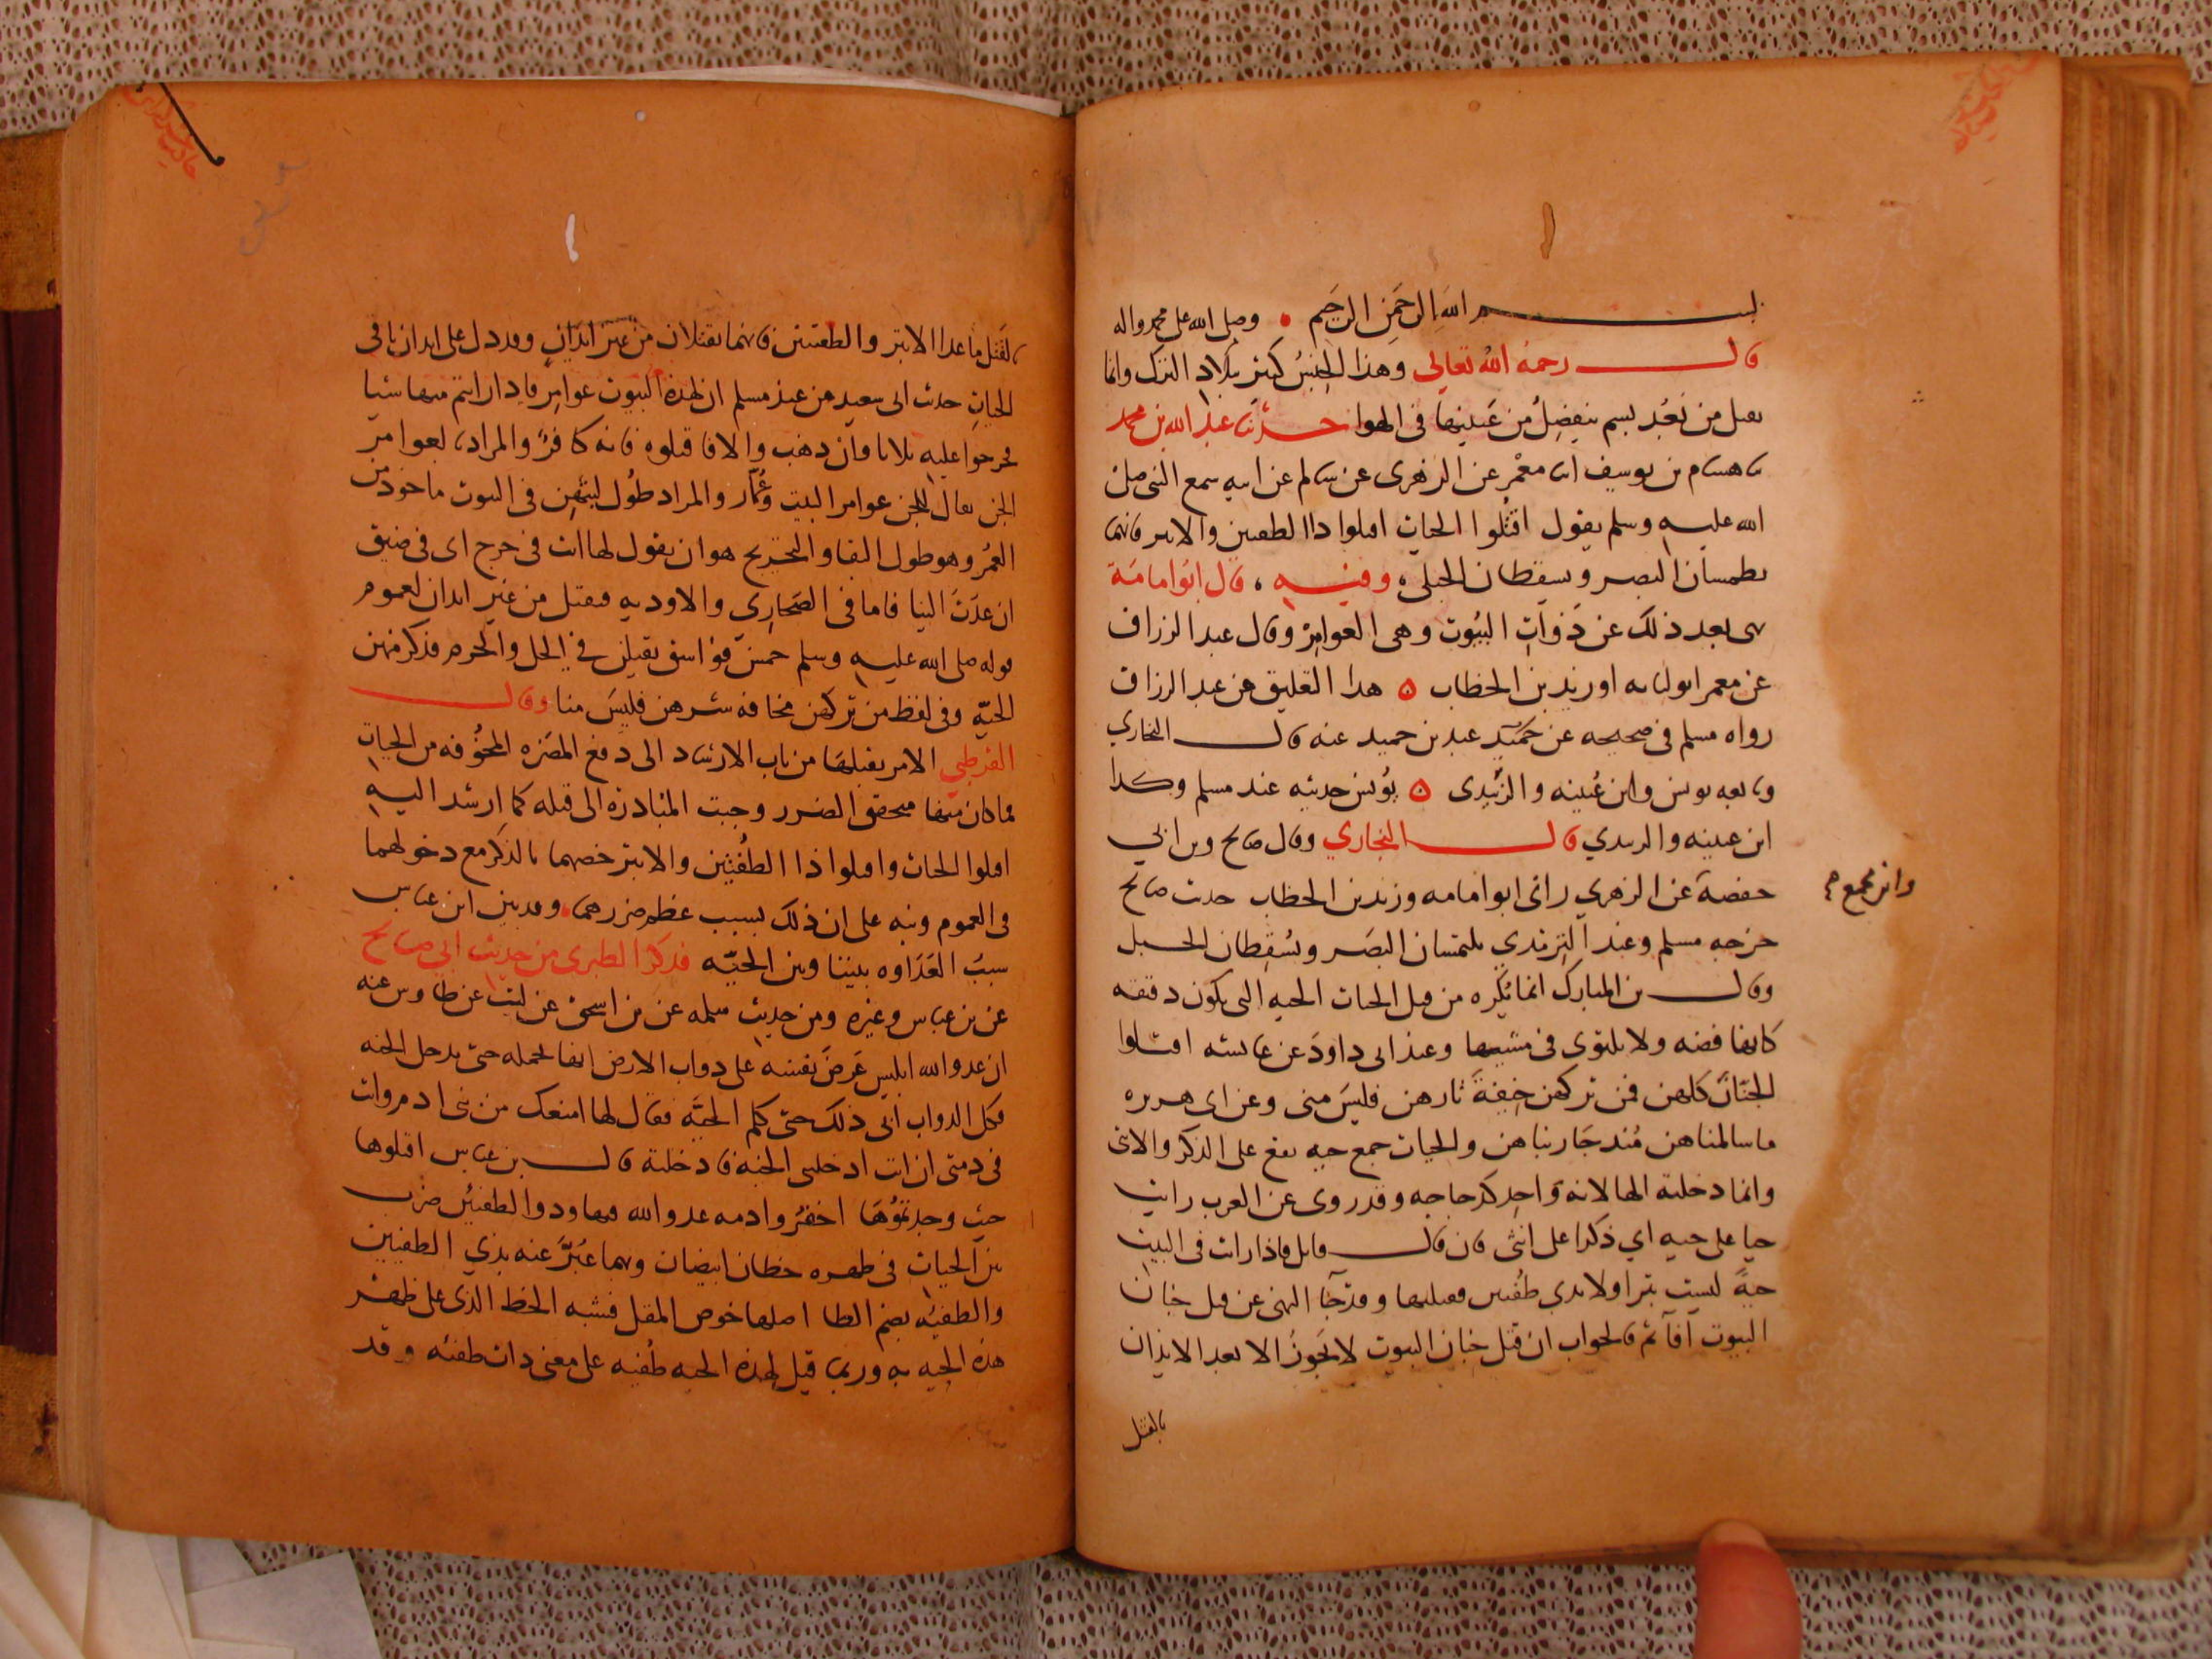 بسم الله الرحمن الرحيم وصلى الله على محمد واله
قال رحمه الله تعالى وهذا الجنس كثير ببلاد الترك وانما
يقتل من بعد بسم ينفصل من عينيها فى الهوا حدثنا عبد الله بن محمد
نا هشام بن يوسف انا معمر عن الزهرى عن سالم عن ابيه سمع النبى صلى
الله عليه وسلم يقول اقتلوا الحيات اقتلوا ذا الطفيتين والابتر فانهما
يطمسان البصر ويسقطان الحبلى وفيه قال ابو امامة
نهى بعد ذلك عن ذوات البيوت وهى العوامر وقال عبد الرزاق
عن معمر ابو لبابه او زيد بن الخطاب ه هذا التعليق عن عبد الرزاق
رواه مسلم فى صحيحه عن حميد عبد بن حميد عنه قال البخاري
وتابعه يونس وابن عيينه والزبيدى ه يونس حديثه عند مسلم وكذا
ابن عيينه والزبيدي قال البخاري وقال صالح وبن ابي
حفصة عن الزهري رانى ابو امامه وزيد بن الخطاب حديث صالح
وابن مجمع صح
خرجه مسلم وعند الترمذي يلتمسان البصر ويسقطان الحبل
وقال بن المبارك انما يكره من قتل الحيات الحيه التى يكون دقيقه
كانها فضه ولا يلتوى فى مشيها وعند ابى داود عن عائشه اقتلوا
الجنان كلهن فمن تركهن خيفة ثارهن فليس منى وعن ابى هريره
ما سالمناهن منذ حاربناهن والحيات جمع حيه يقع على الذكر والانثى
وانما دخلته الها لانه واحد كدجاجه وقد روى عن العرب رايت
حيا على حيه اي ذكرا على انثى فان قال قايل فاذا رات فى البيت
حية ليست بترا ولا بذي طفيتين فقتلها وقد جا النهى عن قتل جنان
البيوت افاثم فالجواب ان قتل جنان البيوت لا يجوز الا بعد الايذان
بالقتل
بالقتل ما عدا الابتر والطفيتين فانهما يقتلان من غير ايذان وقد دل على ايذان باقى
الحيات حديث ابى سعيد من عند مسلم ان لهذه البيوت عوامر فاذا رايتم منها شيا
فحرجوا عليه ثلاثا فان ذهب والا فاقتلوه فانه كافر والمراد بالعوامر
الجن يقال للجن عوامر البيت وعمار والمراد طول لبثهن فى البيوت ماخوذ من
العمر وهو طول البقا والتحريج هو ان يقول لها انت فى حرج اى فى ضيق
ان عدت الينا فاما فى الصحارى والاوديه فيقتل من غير ايذان لعموم
قوله صلى الله عليه وسلم خمس فواسق يقتلن في الحل والحرم فذكر منهن
الحيه وفى لفظ من تركهن مخافه شرهن فليس منا وقال
القرطبي الامر بقتلها من باب الارشاد الى دفع المضره المخوفه من الحيات
فما كان منها متحقق الضرر وجبت المبادره الى قتله كما ارشد اليه
اقتلوا الحيات واقتلوا ذا الطفيتين والابتر خصهما بالذكر مع دخولهما
فى العموم ونبه على ان ذلك بسبب عظم ضررهما وقد بين ابن عباس
سبب العداوه بيننا وبين الحيه فذكر الطبرى من حديث ابي صالح
عن بن عباس وغيره ومن حديث سلمه عن بن اسحق عن ليث عن طاوس عنه
ان عدو الله ابليس عرض نفسه على دواب الارض ايها تحمله حتى يدخل الجنه
فكل الدواب ابى ذلك حتى كلم الحيه فقال لها امنعك من بنى ادم وانت
فى ذمتى ان انت ادخلتنى الجنه فادخلته قال بن عباس اقتلوها
حيث وجدتموها اخفروا ذمه عدو الله فيها وذوا الطفيتين ضرب
من الحيات فى ظهره خطان ابيضان وبهما عبر عنه بذي الطفيتين
والطفيه بضم الطا اصلها خوص المقل فشبه الخط الذى على ظهر
هذه الحيه به وربما قيل لهذه الحيه طفيه على معنى ذات طفيه وقد